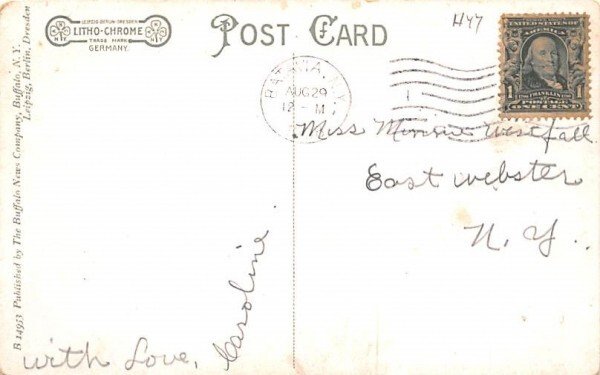 LEIPZIG-BERLIN-DRESDEN
LITHO-CHROME
TRADE MARK
GERMANY.
POST CARD
H47
UNITED STATES OF
AMERICA
FRANKLIN
POSTAGE
1 1
ONE CENT
BATAVIA, N.Y.
AUG 29
12-M
Miss Minnie Westfall
East Webster
N. Y.
with Love, Caroline.
B 14933 Published by The Buffalo News Company, Buffalo, N. Y.
Leipzig, Berlin, Dresden